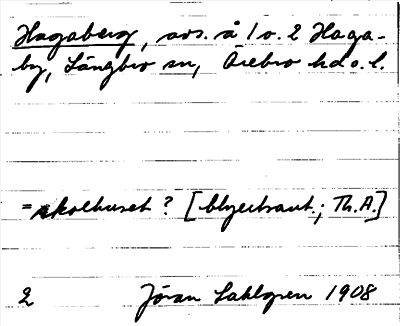 Hagaberg, avs. å 1 o. 2 Haga-
by, Längbro sn, Örebro hd o. l.
= skolhuset? [blyertsant.; Th. A.]
2 Jöran Sahlgren 1908